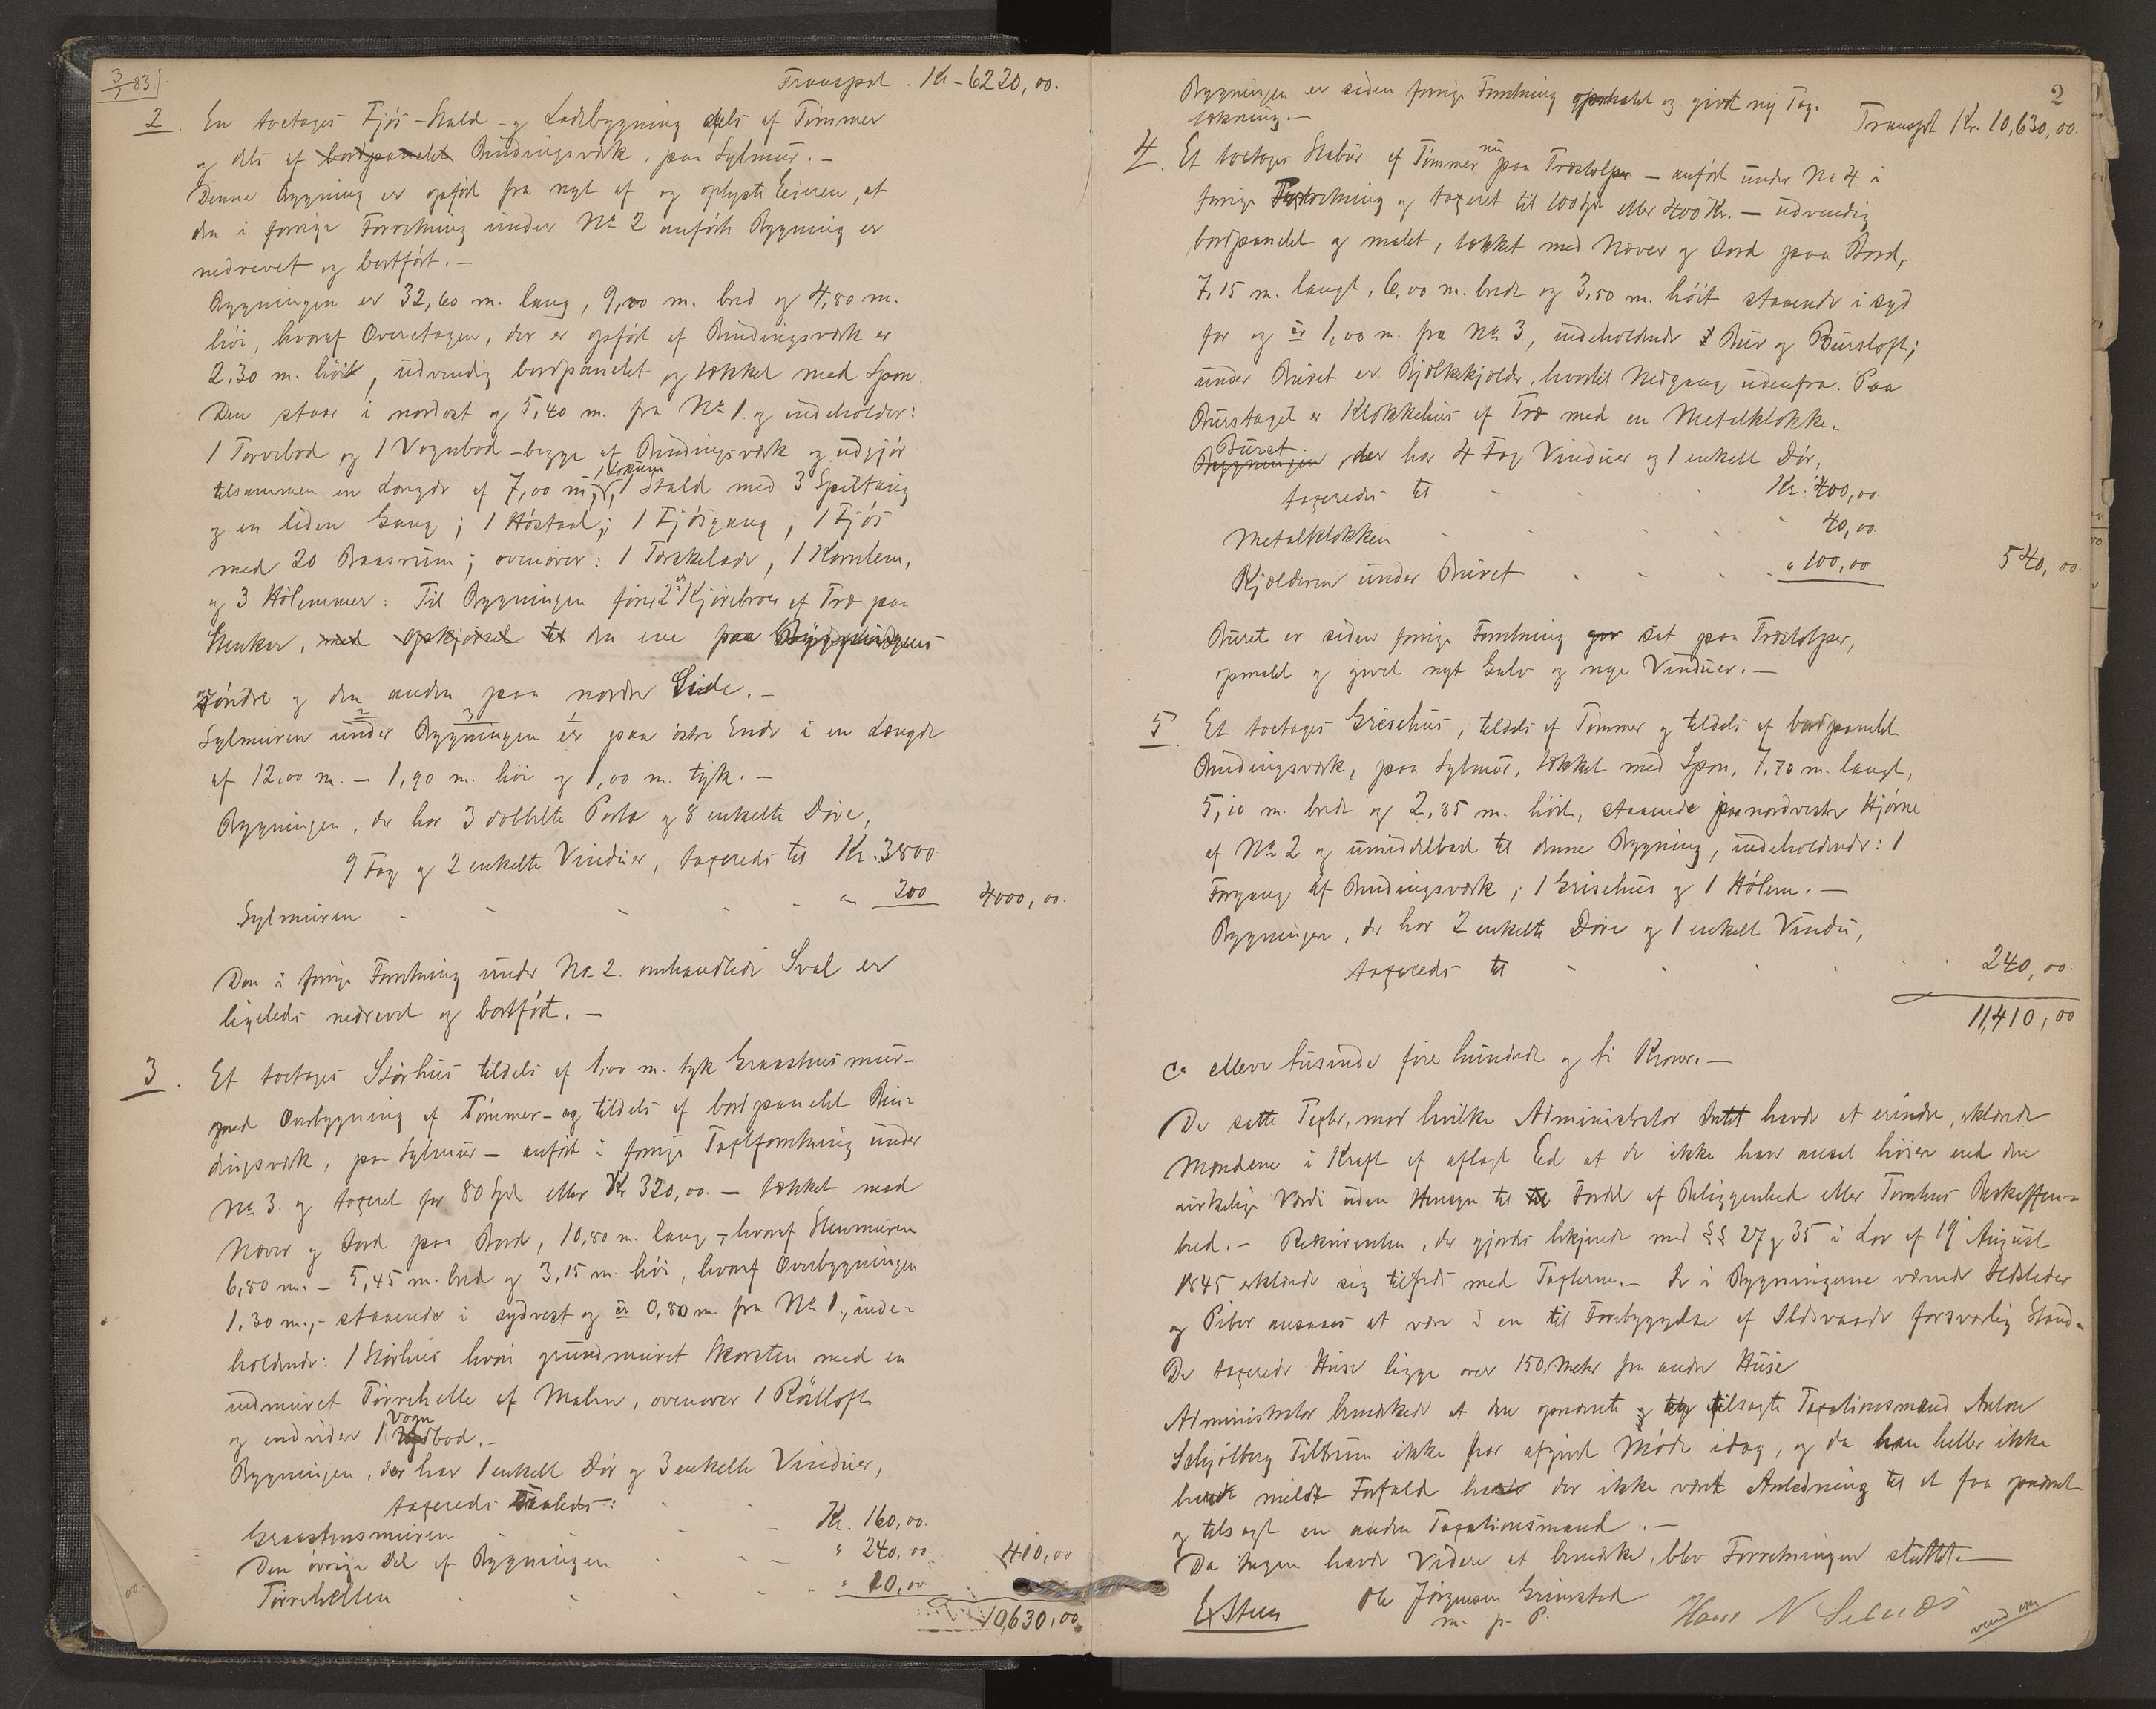 3/1 83.
Transport . Kr. 6220,00.
2. En toetages Fjös-Stald- og Ladebygning dels af Tömmer
og dels af bordpanelet Bindingsværk, paa Sylmur. -
Denne Bygning er opfört fra nyt af og oplyste Eieren, at
den i forrige Forretning under No 2 anförte Bygning er
nedrevet og bortfört. -
Bygningen er 32,60 m. lang, 9,00 m. bred og 4,80 m.
höi, hvoraf Overetagen, der er opfört af Bindingsværk er
2,30 m. höit, udvendig bordpanelet og tækket med Spon.
Den staar i nordost og 5,40 m. fra No 1. og indeholder:
1 Torvebod og 1 Vognbod - begge af Bindingsværk og udgjör
tilsammen en Længde af 7,00 m.; 1 Lokum, 1 Stald med 3 Spiltaug
og en liden Gang; 1 Höstaal; 1 Fjösgang; 1 Fjös
med 20 Baasrum; ovenover: 1 Tærskelade, 1 Kornlem,
og 3 Hölemmer. Til Bygningen förer 2de Kjörebroer af Træ paa
Stenkar, med Opkjørsel til den ene paa Bygningens
söndre og den anden paa nordre Side. -
Sylmuren under Bygningen er paa östre Ende i en Længde
af 12,00 m. - 1,90 m. höi og 1,00 m. tyk. -
Bygningen, der har 3 dobbelte Porte og 8 enkelte Döre,
9 Fag og 2 enkelte Vinduer, taxeredes til Kr. 3800
Sylmuren - - - - - " 200 4000,00.
Den i forrige Forretning under No 2. omhandlede Sval er
ligeledes nedrevet og bortfört. -
3. Et toetages Størhus tildels af 1,00 m. tyk Graastensmur-
med Overbygning af Tömmer- og tildels af bordpanelet Bin-
dingsværk, paa Sylmur - anfört i forrige Taxtforretning under
No 3. og taxeret for 80 Spd eller Kr 320,00. - tækket med
Næver og Jord paa Bord, 10,80 m. lang -, hvoraf Stenmuren
6,80 m. - 5,45 m. bred og 3,15 m. höi, hvoraf Overbygningen
1,30 m., - staaende i sydvest og er 0,80 m fra No 1., inde-
holdende: 1 Størhus hvori grundmuret Skorsten med en
indmuret Törrehelle af Malm, ovenover 1 Rölloft
og endvidere 1 Vognbod. -
Bygningen, der har 1 enkelt Dör og 3 enkelte Vinduer,
taxeredes saaledes:
Graastensmuren - - - Kr. 160,00.
Den övrige Del af Bygningen - - - " 240,00.
Törrehellen - - - - " 10,00. 410,00
10,630,00.
2
Bygningen er siden forrige Forretning opmalet og givet ny Tag-
tækning. -
Transport Kr. 10,630,00.
4. Et toetages Stabur af Tömmer nu paa Træstolper - anfört under No 4 i
forrige Forretning og taxeret til 100 Spd eller 400 Kr. - udvendig
bordpanelet og malet, tækket med Næver og Jord paa Bord,
7,15 m. langt, 6,00 m. bredt og 3,50 m. höit staaende i syd
for og er 1,00 m. fra No 3., indeholdende Bur og Bursloft;
under Buret er Bjelkekjelder, hvortil Nedgang udenfra. Paa
Burstaget er Klokkehus af Træ med en Metalklokke.
Buret
Bygningen, der har 4 Fag Vinduer og 1 enkelt Dör,
taxeredes til - - - Kr. 400,00.
Metalklokken - - - - " 40,00
Kjelderen under Buret - - - - " 100,00 540,00.
Buret er siden forrige Forretning sat paa Træstolper,
opmalet og givet nyt Gulv og nye Vinduer. -
5. Et toetages Grisehus, tildels af Tömmer og tildels af bordpanelet
Bindingsværk, paa Sylmur, tækket med Spon, 7,70 m. langt,
5,10 m. bredt og 2,85 m. höit, staaende paa nordvestre Hjörne
af No 2 og umiddelbart til denne Bygning, indeholdende: 1
Forgang af Bindingsværk; 1 Grisehus og 1 Hölem. -
Bygningen, der har 2 enkelte Döre og 1 enkelt Vindu,
taxeredes til - - - - 240,00.
11,410,00
elleve tusinde fire hundrede og ti Kroner. -
De satte Taxter, mod hvilke Administrator Intet havde at erindre, erklærede
Mændene i Kraft af aflagt Ed at de ikke have ansat höiere end den
virkelige Værdi uden Hensyn til Fordel af Beliggenhed eller Tomtens Beskaffen-
hed. - Rekvirenten, der gjordes bekjendt med §§ 27 og 35 i Lov af 19 August
1845 erklærede sig tilfreds med Taxterne. - De i Bygningerne værende Ildsteder
og Piber ansaaes at være i en til Forebyggelse af Ildsvaade forsvarlig Stand.
De taxerede Huse ligge over 150 Meter fra andre Huse
Administrator bemærkede at den opnævnte og tilsagte Taxationsmand Anton
Schjölberg Tiltrum ikke har afgivet Möde idag, og da han heller ikke
havde meldt Forfald havde der ikke været Anledning til at faa opnævnt
og tilsagt en anden Taxationsmand. -
Da Ingen havde Videre at bemærke, blev Forretningen sluttet. -
E. Steen Ole Jörgensen Grimsted Hans N Selnes
m. p. P. vend om